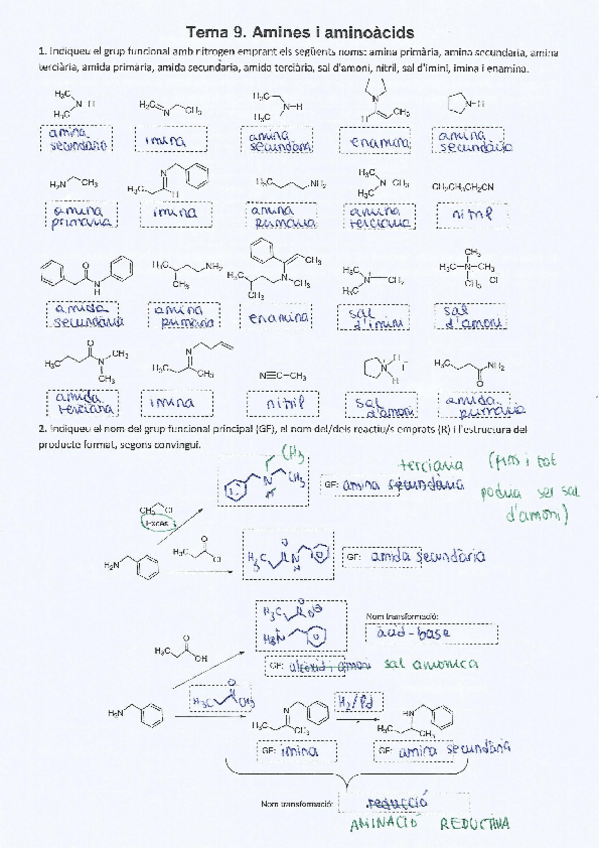 Tema 9. Amines i aminoàcids
1. Indiqueu el grup funcional amb nitrogen emprant els següents noms: amina primària, amina secundària, amina
terciària, amida primària, amida secundària, amida terciària, sal d'amoni, nitril, sal d'imini, imina i enamina.
H₃C N H H₃C
H₂C N CH₃
H₃C N H
N H CH₃
N H
amina secundària
imina
amina secundària
enamina
amina secundària
H₂N CH₃
N H₃C H
H₃C NH₂
H₃C N CH₃ H₃C
CH₃CH₂CH₂CN
amina primària
imina
amina primària
amina terciària
nitril
O N H
H₃C NH₂ CH₃
CH₃ H₃C N CH₃ CH₃
H₃C N CH₂ H₃C
CH₃ H₃C N CH₃ CH₃ Cl
amida secundària
amina primària
enamina
sal d'imini
sal d'amoni
O H₃C N CH₃ CH₃
N H₃C CH₃
N≡C−CH₃
N H H I
H₃C NH₂ O
amida terciària
imina
nitril
sal d'amoni
amida primària
2. Indiqueu el nom del grup funcional principal (GF), el nom del/dels reactiu/s emprats (R) i l'estructura del
producte format, segons convingui.
CH₃
N CH₃
terciària (fins i tot
GF: amina secundària
podria ser sal
d'amoni)
CH₃ Cl
Excés
H₂N
O H₃C Cl
H₃C O N H
GF: amida secundària
O H₃C OH
H₃C O O
H₃N
Nom transformació:
àcid-base
GF: sal amònica
H₂N
H₃C O CH₃
N H₃C CH₃
H₂/Pd
HN H₃C CH₃
GF: imina
GF: amina secundària
Nom transformació: reducció
AMINACIÓ REDUCTIVA